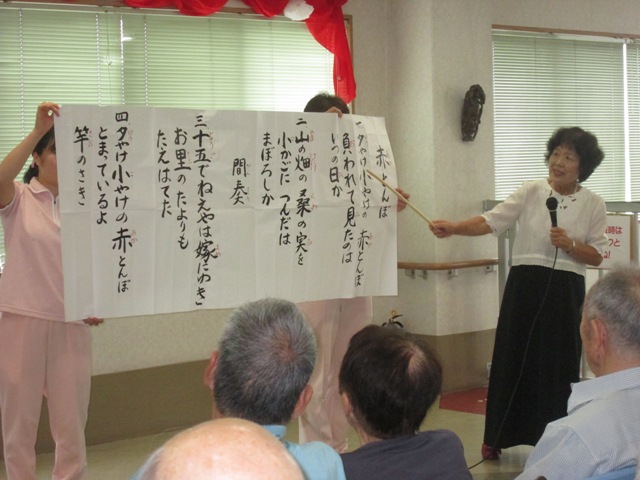 赤とんぼ
一夕やけ小やけの 赤とんぼ
負われて見たのは
いつの日か
二山の畑の 桑の実を
小かごに つんだは
まぼろしか
間奏
三十五でねえやは嫁にゆき
お里のたよりも
たえはてた
四夕やけ小やけの 赤とんぼ
とまっているよ
竿のさき